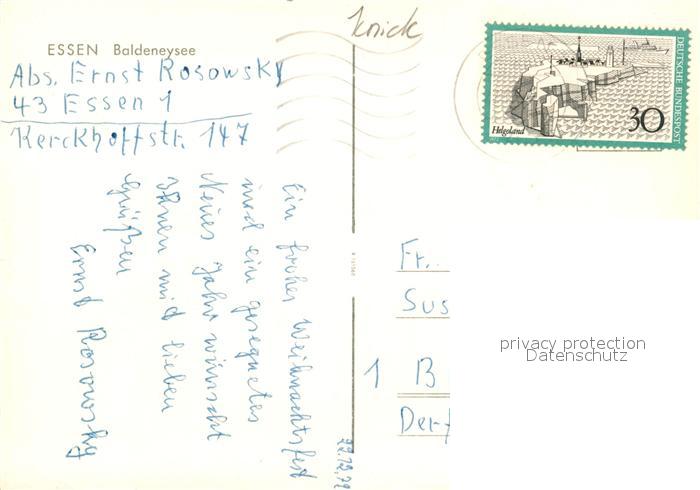 knick
ESSEN Baldeneysee
Abs. Ernst Rosowsky
43 Essen 1
Kerckhoffstr. 147
Ein frohes Weihnachtsfest
und ein gesegnetes
Neues Jahr wünscht
Ihnen mit lieben
Grüßen
Ernst Rosowsky
22.12.72
DEUTSCHE BUNDESPOST
Helgoland
30
Fr.
Sus
1 B
Der-
privacy protection
Datenschutz